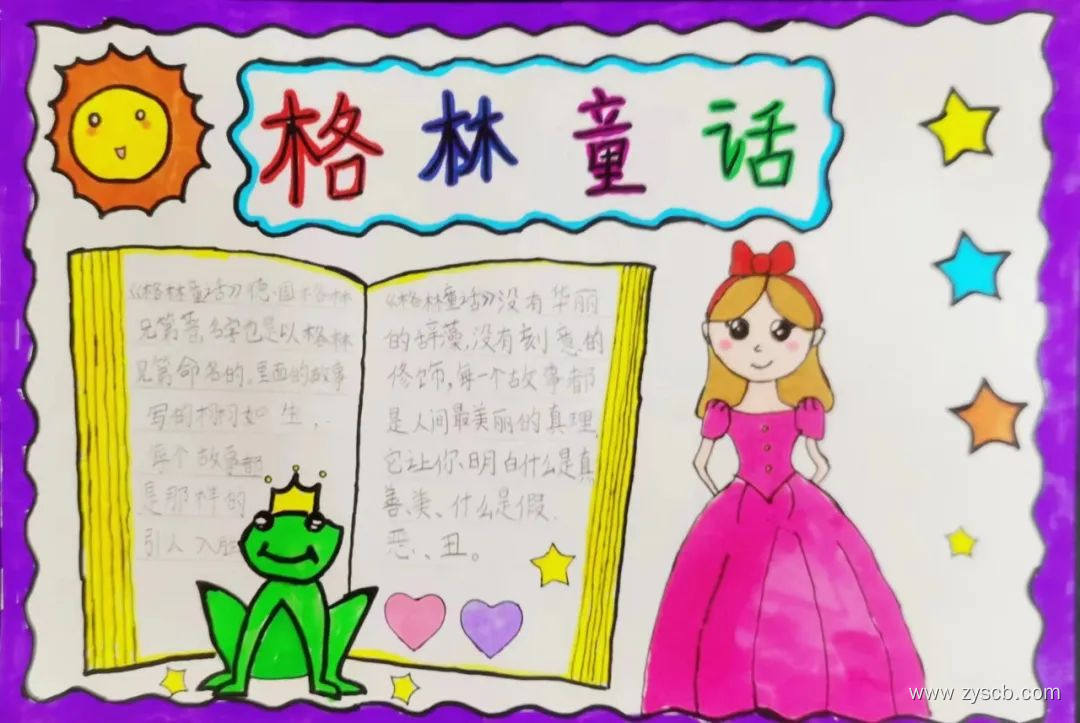 格林童话
《格林童话》德国格林
兄第著,名字也是以格林
兄第命名的。里面的故事
写的栩栩如生,
每个故事都
是那样的
引人入胜
《格林童话》没有华丽
的辞藻,没有刻意的
修饰,每一个故事都
是人间最美丽的真理
它让你、明白什么是真
善、美、什么是假、
恶、丑。
www.zyscb.com